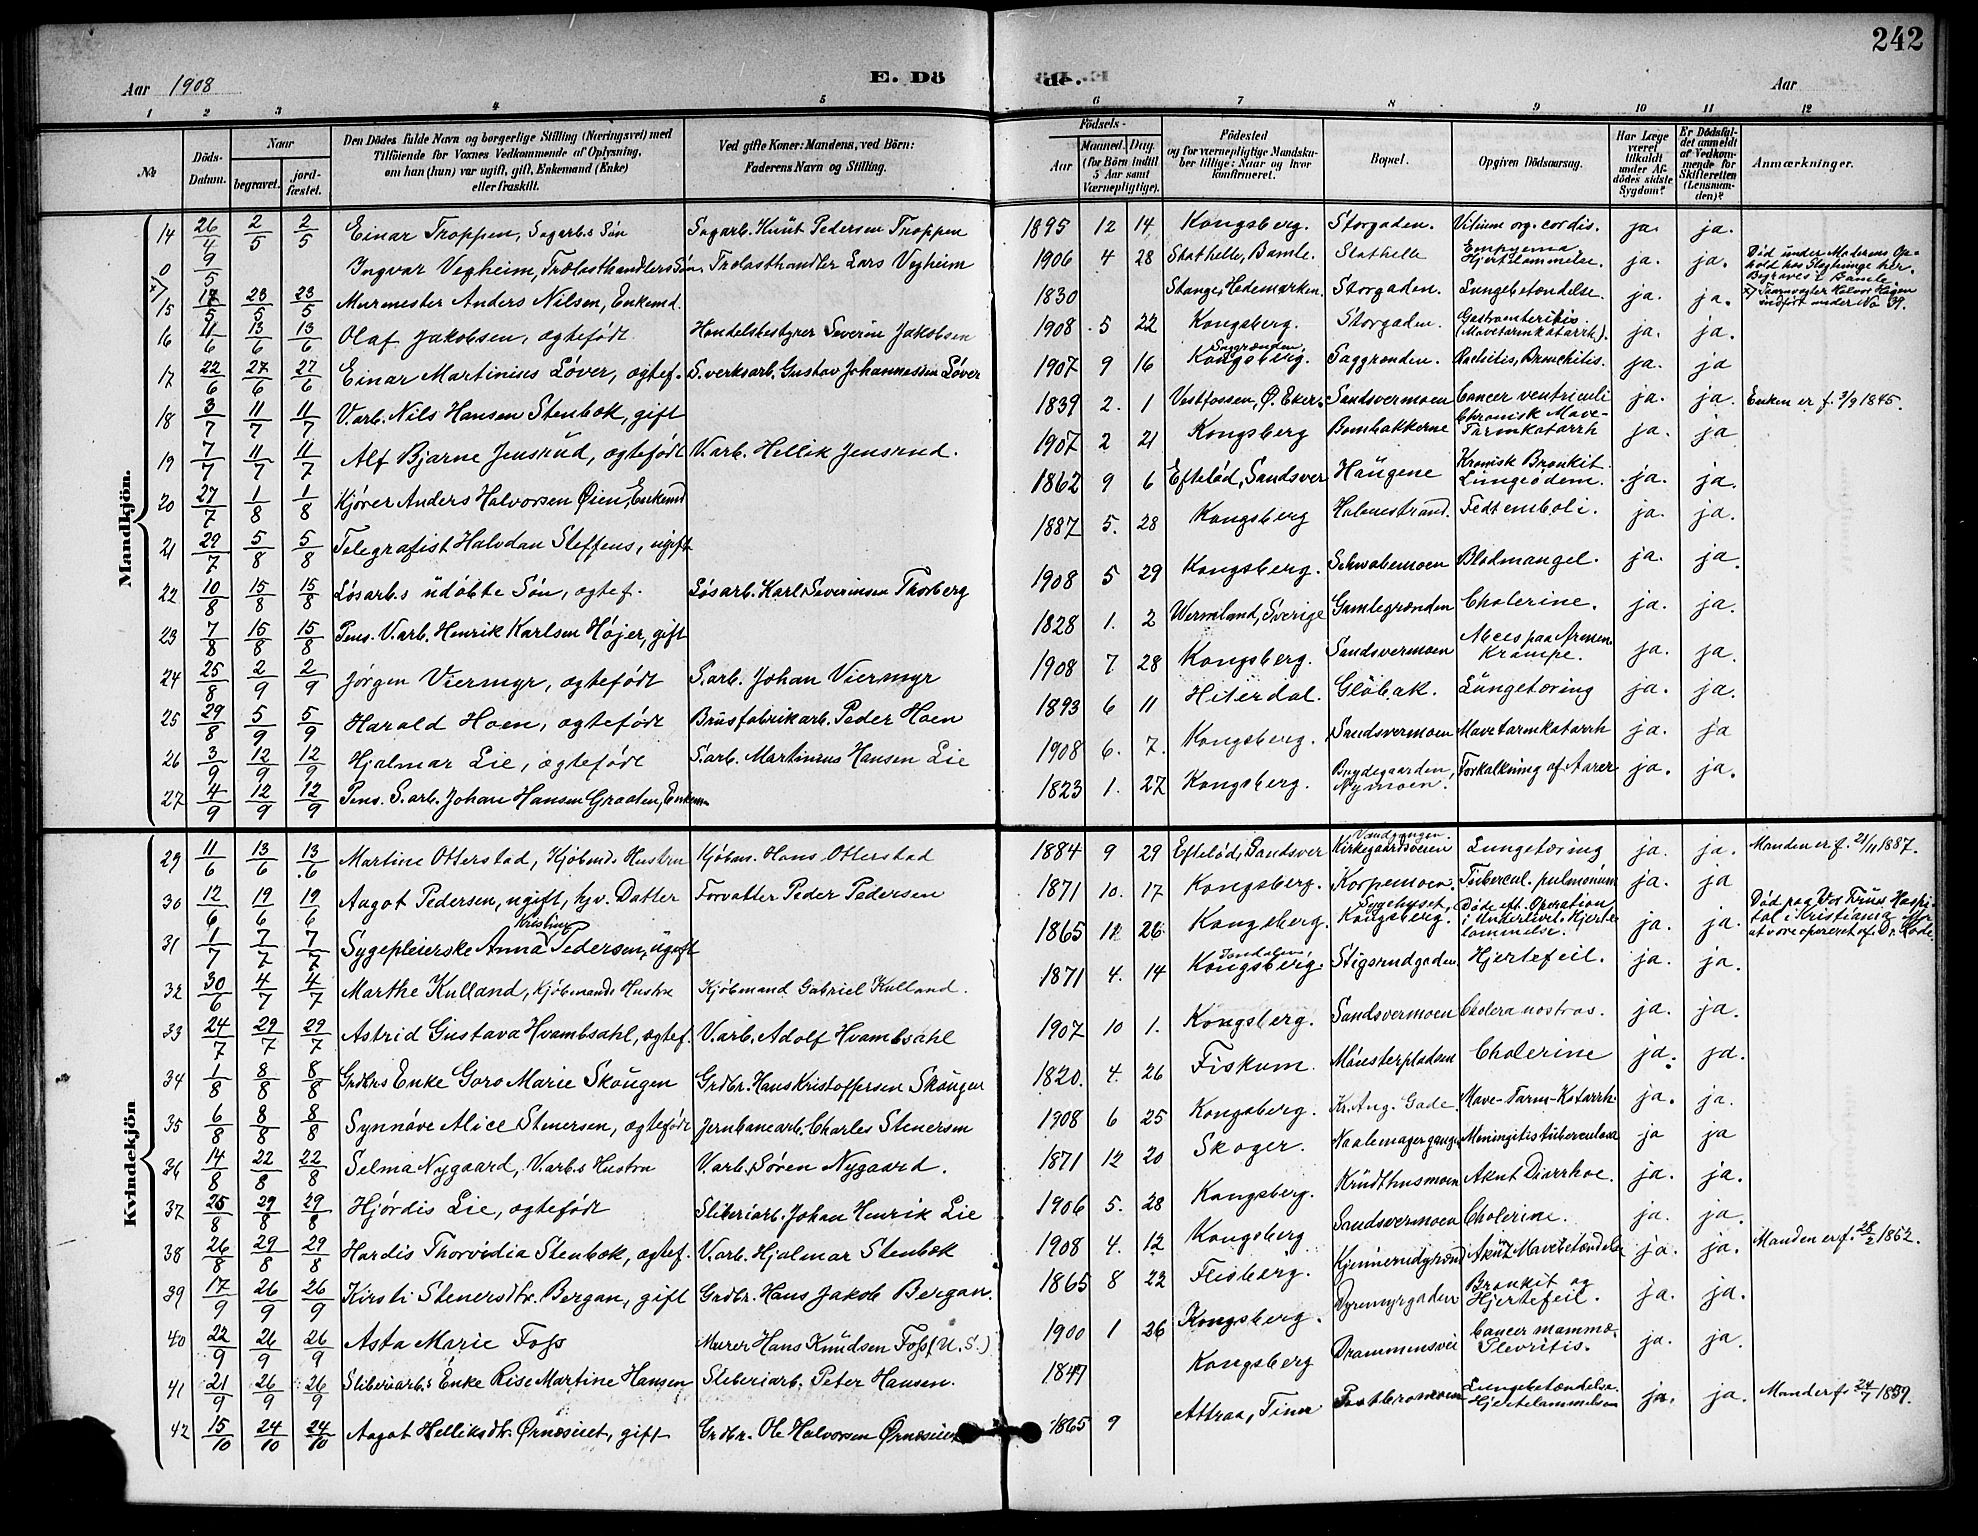 242
Aar 1908 E. Dö de. Aar
1 2 3 4 5 6 7 8 9 10 11 12
№ Döds-Datum. Naar begravet. jord-fæstet. Den Dödes fulde Navn og borgerlige Stilling (Næringsvei) med Tilföiende for Voxnes Vedkommende af Oplysning, om han (hun) var ugift, gift, Enkemand (Enke) eller fraskilt. Ved gifte Koner: Mandens, ved Börn: Faderens Navn og Stilling. Födsels- Aar Maaned. Dag. (for Börn indtil 5 Aar samt Værnepligtige). Födested og for værnepligtige Mandskaber tillige: Naar og hvor konfirmeret. Bopæl. Opgiven Dödsaarsag. Har Læge været tilkaldt under Afdödes sidste Sygdom? Er Dödsfaldet anmeldt af Vedkommende for Skifteretten (Lensmanden)? Anmærkninger.
Mandkjön.
14 26/4 2/5 2/5 Einar Troppen, Sagarb.s Søn Sagarb. Knut Pedersen Troppen 1895 12 14 Kongsberg. Storgaden. Vitium org. cordis. ja. ja.
0 9/5 Ingvar Vegheim, Trælasthandlers Søn Trælasthandler Lars Vegheim 1906 4 28 Stathelle, Bamle. Stathelle Empyema Hjertelammelse. ja. ja. Død under Moderens Ophold hos Slegtninge her. Begravet i Bamle
15 17/5 23/5 23/5 Murmester Anders Nilsen, Enkemd. 1830 Stange, Hedemarken. Storgaden. Lungebetændelse. ja. ja. x) Taarnvægter Halvor Hagen indført under No 39.
16 4/6 13/6 13/6 Olaf Jakobsen, ægtefødt Handelsbestyrer Severin Jakobsen 1908 5 22 Kongsberg. Storgaden. Gastroenteritis (Mavetarmkatarrh). ja. ja.
17 22/6 27/6 27/6 Einar Martinius Løver, ægtef. S.verksarb. Gustav Johannessen Løver 1907 9 16 Saggrænden, Kongsberg. Saggrænden. Rachitis, Bronchitis. ja. ja
18 3/7 11/7 11/7 V.arb. Nils Hansen Stenbok, gift 1839 2. 1 Vestfossen, Ø. Eker. Sandsvermoen Cancer ventriculi ja. ja. Enken er f. 3/9 1845.
19 7/7 11/7 11/7 Alf Bjarne Jensrud, ægtefødt V.arb. Hellik Jensrud. 1907 2 21 Kongsberg Bombakkerne Chronisk Mave-Tarmkatarrh ja. ja
20 27/7 1/8 1/8 Kjører Anders Halvorsen Øien, Enkemd 1862 9 6 Eftelød, Sandsver Haugene Kronisk Bronkit. Lungeødem. ja. ja.
21 29/7 5/8 5/8 Telegrafist Halvdan Steffens, ugift 1887 5. 28 Kongsberg Holmestrand. Fedtemboli. ja. ja.
22 10/8 15/8 15/8 Løsarb.s udøbte Søn, ægtef. Løsarb. Karl Severinsen Thorberg 1908 5 29 Kongsberg. Schwabemoen Blodmangel. ja. ja.
23 7/8 15/8 15/8 Pens. V.arb. Henrik Karlsen Højer, gift 1828 1. 2 Wermland, Sverige Gamlegrænden Cholerine. ja. ja.
24 25/8 2/9 2/9 Jørgen Viermyr, ægtefødt S.arb. Johan Viermyr 1908 7 28 Kongsberg. Sandsvermoen Absces paa Armen. Krampe. ja. ja.
25 29/8 5/9 5/9 Harald Hoen, ægtefødt Brusfabrikarb. Peder Hoen 1893 6 11 Hiterdal. Gløbak. Lungetæring ja. ja.
26 3/9 12/9 12/9 Hjalmar Lie, ægtefødt S.arb. Martinius Hansen Lie 1908 6. 7. Kongsberg. Sandsvermoen Mavetarmkatarrh ja. ja
27 4/9 12/9 12/9 Pens. S.arb. Johan Hansen Graaten, Enkem 1823 1. 27 Kongsberg. Brydegaarden, Nymoen. Forkalkning af Aarer ja. ja.
Kvindekjön
29 11/6 13/6 13/6 Martine Otterstad, Kjøbmds Hustru Kjøbm. Hans Otterstad 1884 9 29 Eftelød, Sandsver Vandgangen. Kirkegaardsveien Lungetæring ja. ja. Manden er f. 21/11 1887.
30 12/6 19/6 19/6 Aagot Pedersen, ugift, hjv. Datter Forvalter Peder Pedersen 1871 10. 17 Kongsberg. Korpemoen. Tubercul. pulmonum ja. ja
31 1/7 7/7 7/7 Sygepleierske Anna Kristine Pedersen, ugift 1865 12 26 Kongsberg. Sygehuset, Kongsberg. Døde eft. Operation i Underlivet. Hjertelammelse. ja. ja. Død paa Vor Frues Hospital i Kristiania efter at være opereret af Dr. Kade.
32 30/6 4/7 4/7 Marthe Kulland, Kjøbmands Hustru Kjøbmand Gabriel Kulland. 1871 4. 14 Jondalen, Kongsberg. Stigsrudgaden Hjertefeil. ja. ja.
33 24/7 29/7 29/7 Astrid Gustava Hvambsahl, ægtef. V.arb. Adolf Hvambsahl 1907 10 1. Kongsberg. Sandsvermoen Cholera nostras. ja. ja.
34 1/8 8/8 8/8 Grdbrs Enke Goro Marie Skougen Grdbr. Hans Kristoffersen Skougen 1820. 4. 26 Fiskum. Mønsterpladsen Cholerine ja. ja.
35 6/8 8/8 8/8 Synnøve Alice Stenersen, ægtefødt Jernbanearb. Charles Stenersen 1908 6 25 Kongsberg. Kr. Aug. Gade. Mave-Tarm-Katarrh. ja. ja.
36 14/8 22/8 22/8 Selma Nygaard, V.arb.s Hustru V.arb. Søren Nygaard. 1871 12 20 Skoger. Naalemagergangen Meningitis tuberculosa ja ja
37 25/8 29/8 29/8 Hjørdis Lie, ægtefødt Sliberiarb. Johan Henrik Lie 1906 5. 28 Kongsberg. Krudthusmoen Akut Diarrhoe. ja. ja.
38 26/8 29/8 29/8 Hardis Thorvidia Stenbok, ægtef. V.arb. Hjalmar Stenbæk 1908 4. 12 Kongsberg Sandsvermoen Cholerine. ja. ja.
39 17/9 26/9 26/9 Kirsti Stenersdtr. Bergan, gift Grdbr. Hans Jakob Bergan. 1865 8 22 Flisberg. Kjennerudgrænd Akut Mavebetændelse ja. ja. Manden er f. 28/2 1862.
40 22/9 26/9 26/9 Asta Marie Foss Murer Hans Knudsen Foss (U.S.) 1900 1 26 Kongsberg. Dyremyrgaden Bronkit og Hjertefeil. ja. ja.
41 21/9 26/9 26/9 Sliberiarb.s Enke Rise Martine Hansen Sliberiarb. Peter Hansen. 1847 Kongsberg Drammensvei Cancer mammæ. Plevritis. ja. ja.
42 15/10 24/10 24/10 Aagot Helliksdtr. Ørnæseiet, gift Grdbr. Ole Halvorsen Ørnæseiet 1865 9 Attraa, Tinn Lungebetændelse. Hjertelammelse ja. ja. Manden f. 24/7 1859.